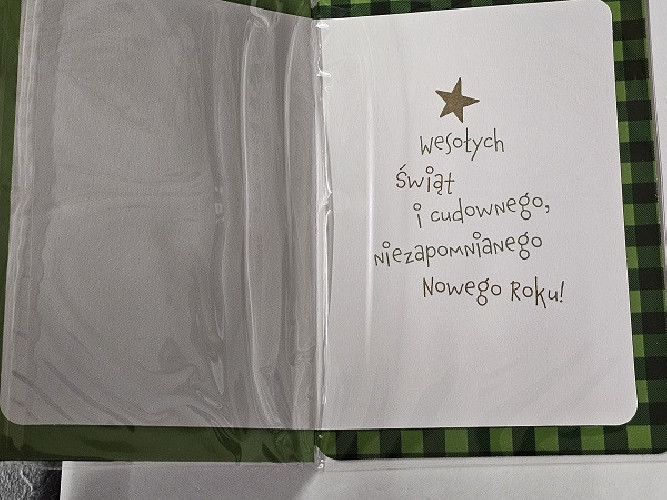 Wesołych
Świąt
i cudownego,
niezapomnianego
Nowego Roku!